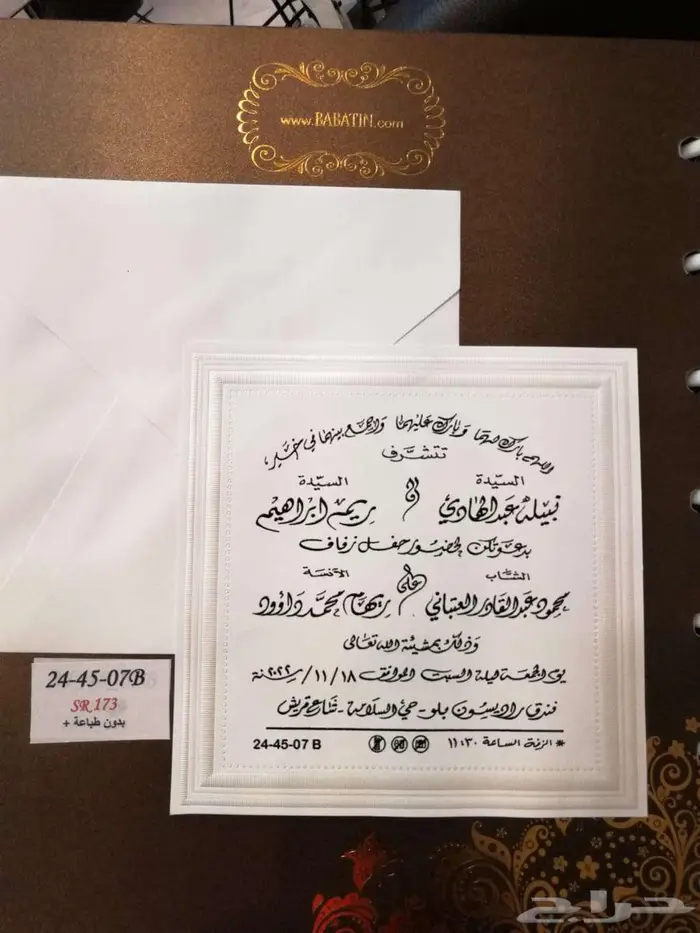 www.BABATIN.com
اللهم بارك لهما وبارك عليهما واجمع بينهما في خير،
تتشرف
السيّدة السيّدة
نبيله عبدالهادي و ريمه ابراهيم
بدعوتكن لحضور حفل زفاف
الشاب الآنسة
محمود عبدالقادر العتباني على ريهام محمد داوود
وذلك بمشيئة الله تعالى
يوم الجمعة ليلة السبت الموافق ١٨/١١/٢٠٢٢
فندق راديسون بلو - حي السلامة - شارع قريش
* الزفة الساعة ١١:٣٠
24-45-07 B
24-45-07B
SR 173
بدون طباعة +
حراج